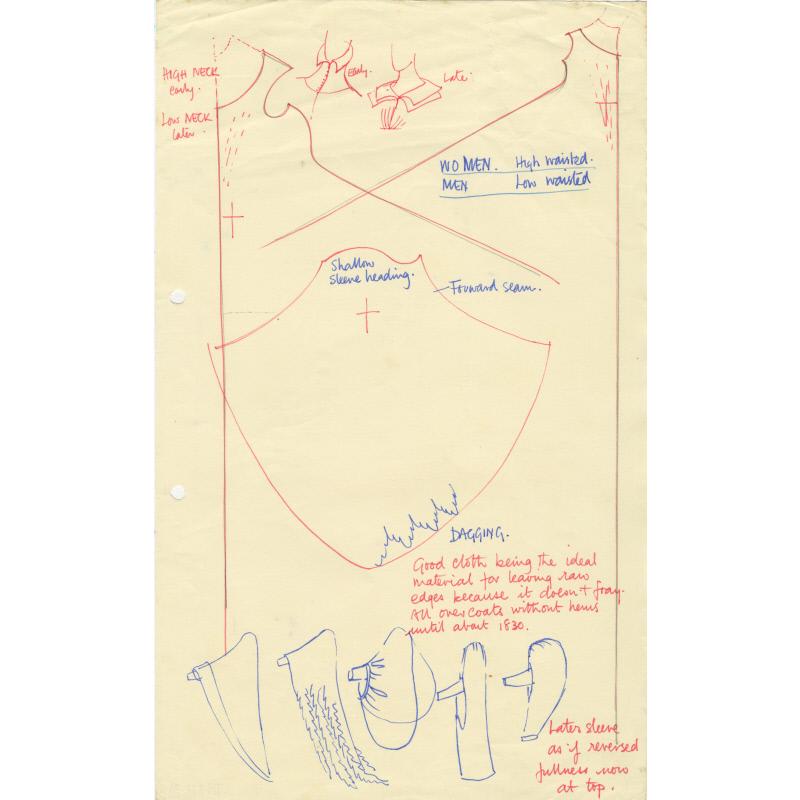 HIGH NECK
early.
LOW NECK
later.
Early.
Late.
WOMEN. High waisted.
MEN Low waisted
Shallow
sleeve heading.
Forward seam.
DAGGING.
Good cloth being the ideal
material for leaving raw
edges because it doesn't fray.
All overcoats without hems
until about 1830.
Later sleeve
as if reversed
fullness now
at top.